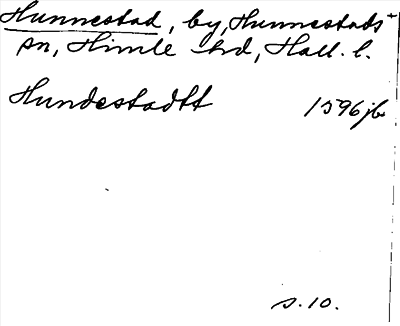 Hunnestad, by, Hunnestads
sn, Himle hd, Hall. l.
Hundestadtt 1596 jb
s. 10.